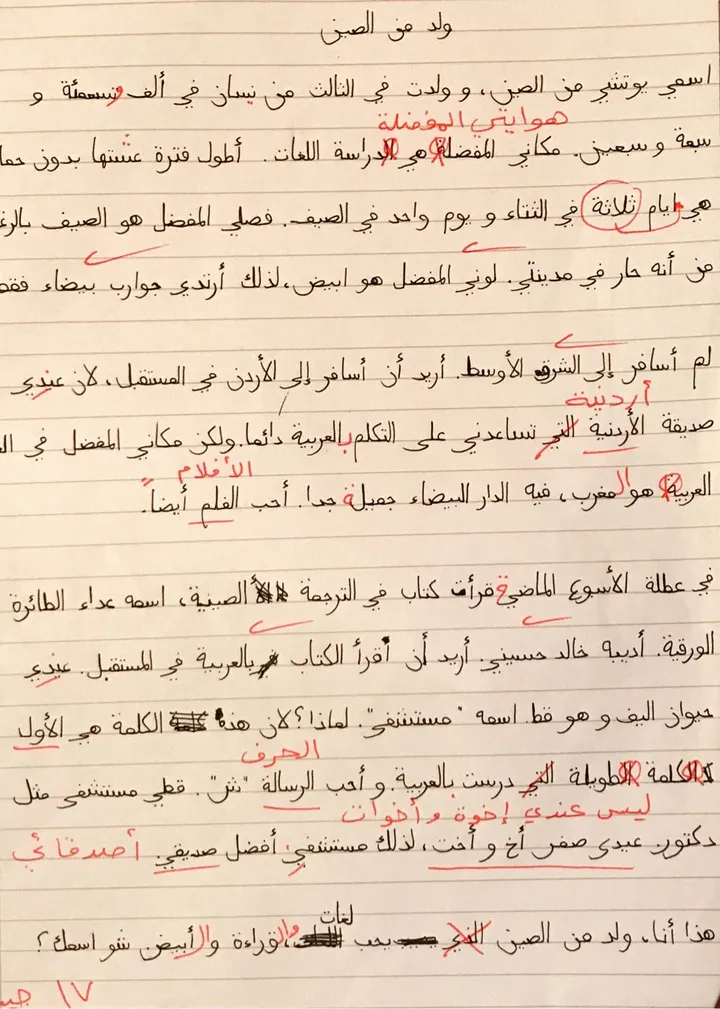 ولد من الصين
اسمي يوتشي من الصين، و ولدت في الثالث من نيسان في ألف وتسعمئة و
هوايتي المفضلة
سبعة و سبعين. مكاني المفضلة هي الدراسة اللغات. أطول فترة عشتها بدون حما
هي ايام ثلاثة في الشتاء و يوم واحد في الصيف. فصلي المفضل هو الصيف بالرغ
من أنه حار في مدينتي. لوني المفضل هو ابيض، لذلك أرتدي جوارب بيضاء فقط
لم أسافر إلى الشرق الأوسط. أريد أن أسافر إلى الأردن في المستقبل، لان عندي
أردنية
صديقة الأردنية التي تساعدني على التكلم بالعربية دائما. ولكن مكاني المفضل في ال
الأفلام
العربية هو المغرب، فيه الدار البيضاء جميلة جدا. أحب الفلم أيضاً.
في عطلة الأسوع الماضية قرأت كتاب في الترجمة الصينية، اسمه عداء الطائرة
الورقية. أديبه خالد حسيني. أريد أن أقرأ الكتاب بالعربية في المستقبل. عندي
حيوان اليف و هو قط. اسمه "مستشفى". لماذا؟ لان هذه الكلمة هي الأول
الحرف
الكلمة الطويلة التي درست بالعربية. و أحب الرسالة "ش". قطي مستشفى مثل
ليس عندي إخوة وأخوات
دكتور. عندي صفر أخ و أخت، لذلك مستشفى أفضل صديقي. أصدقائي
لغات
هذا أنا، ولد من الصين الذي يحب والقراءة والأبيض. شو اسمك؟
١٧